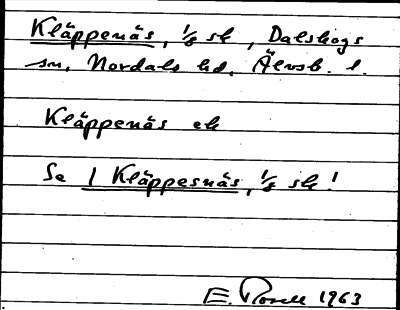 Kläppenäs, 1/8 sk, Dalskogs
sn, Nordals hd, Älvsb. l.
Kläppenäs ek
Se 1 Kläppesnäs, 1/8 sk!
E. Rosell 1963